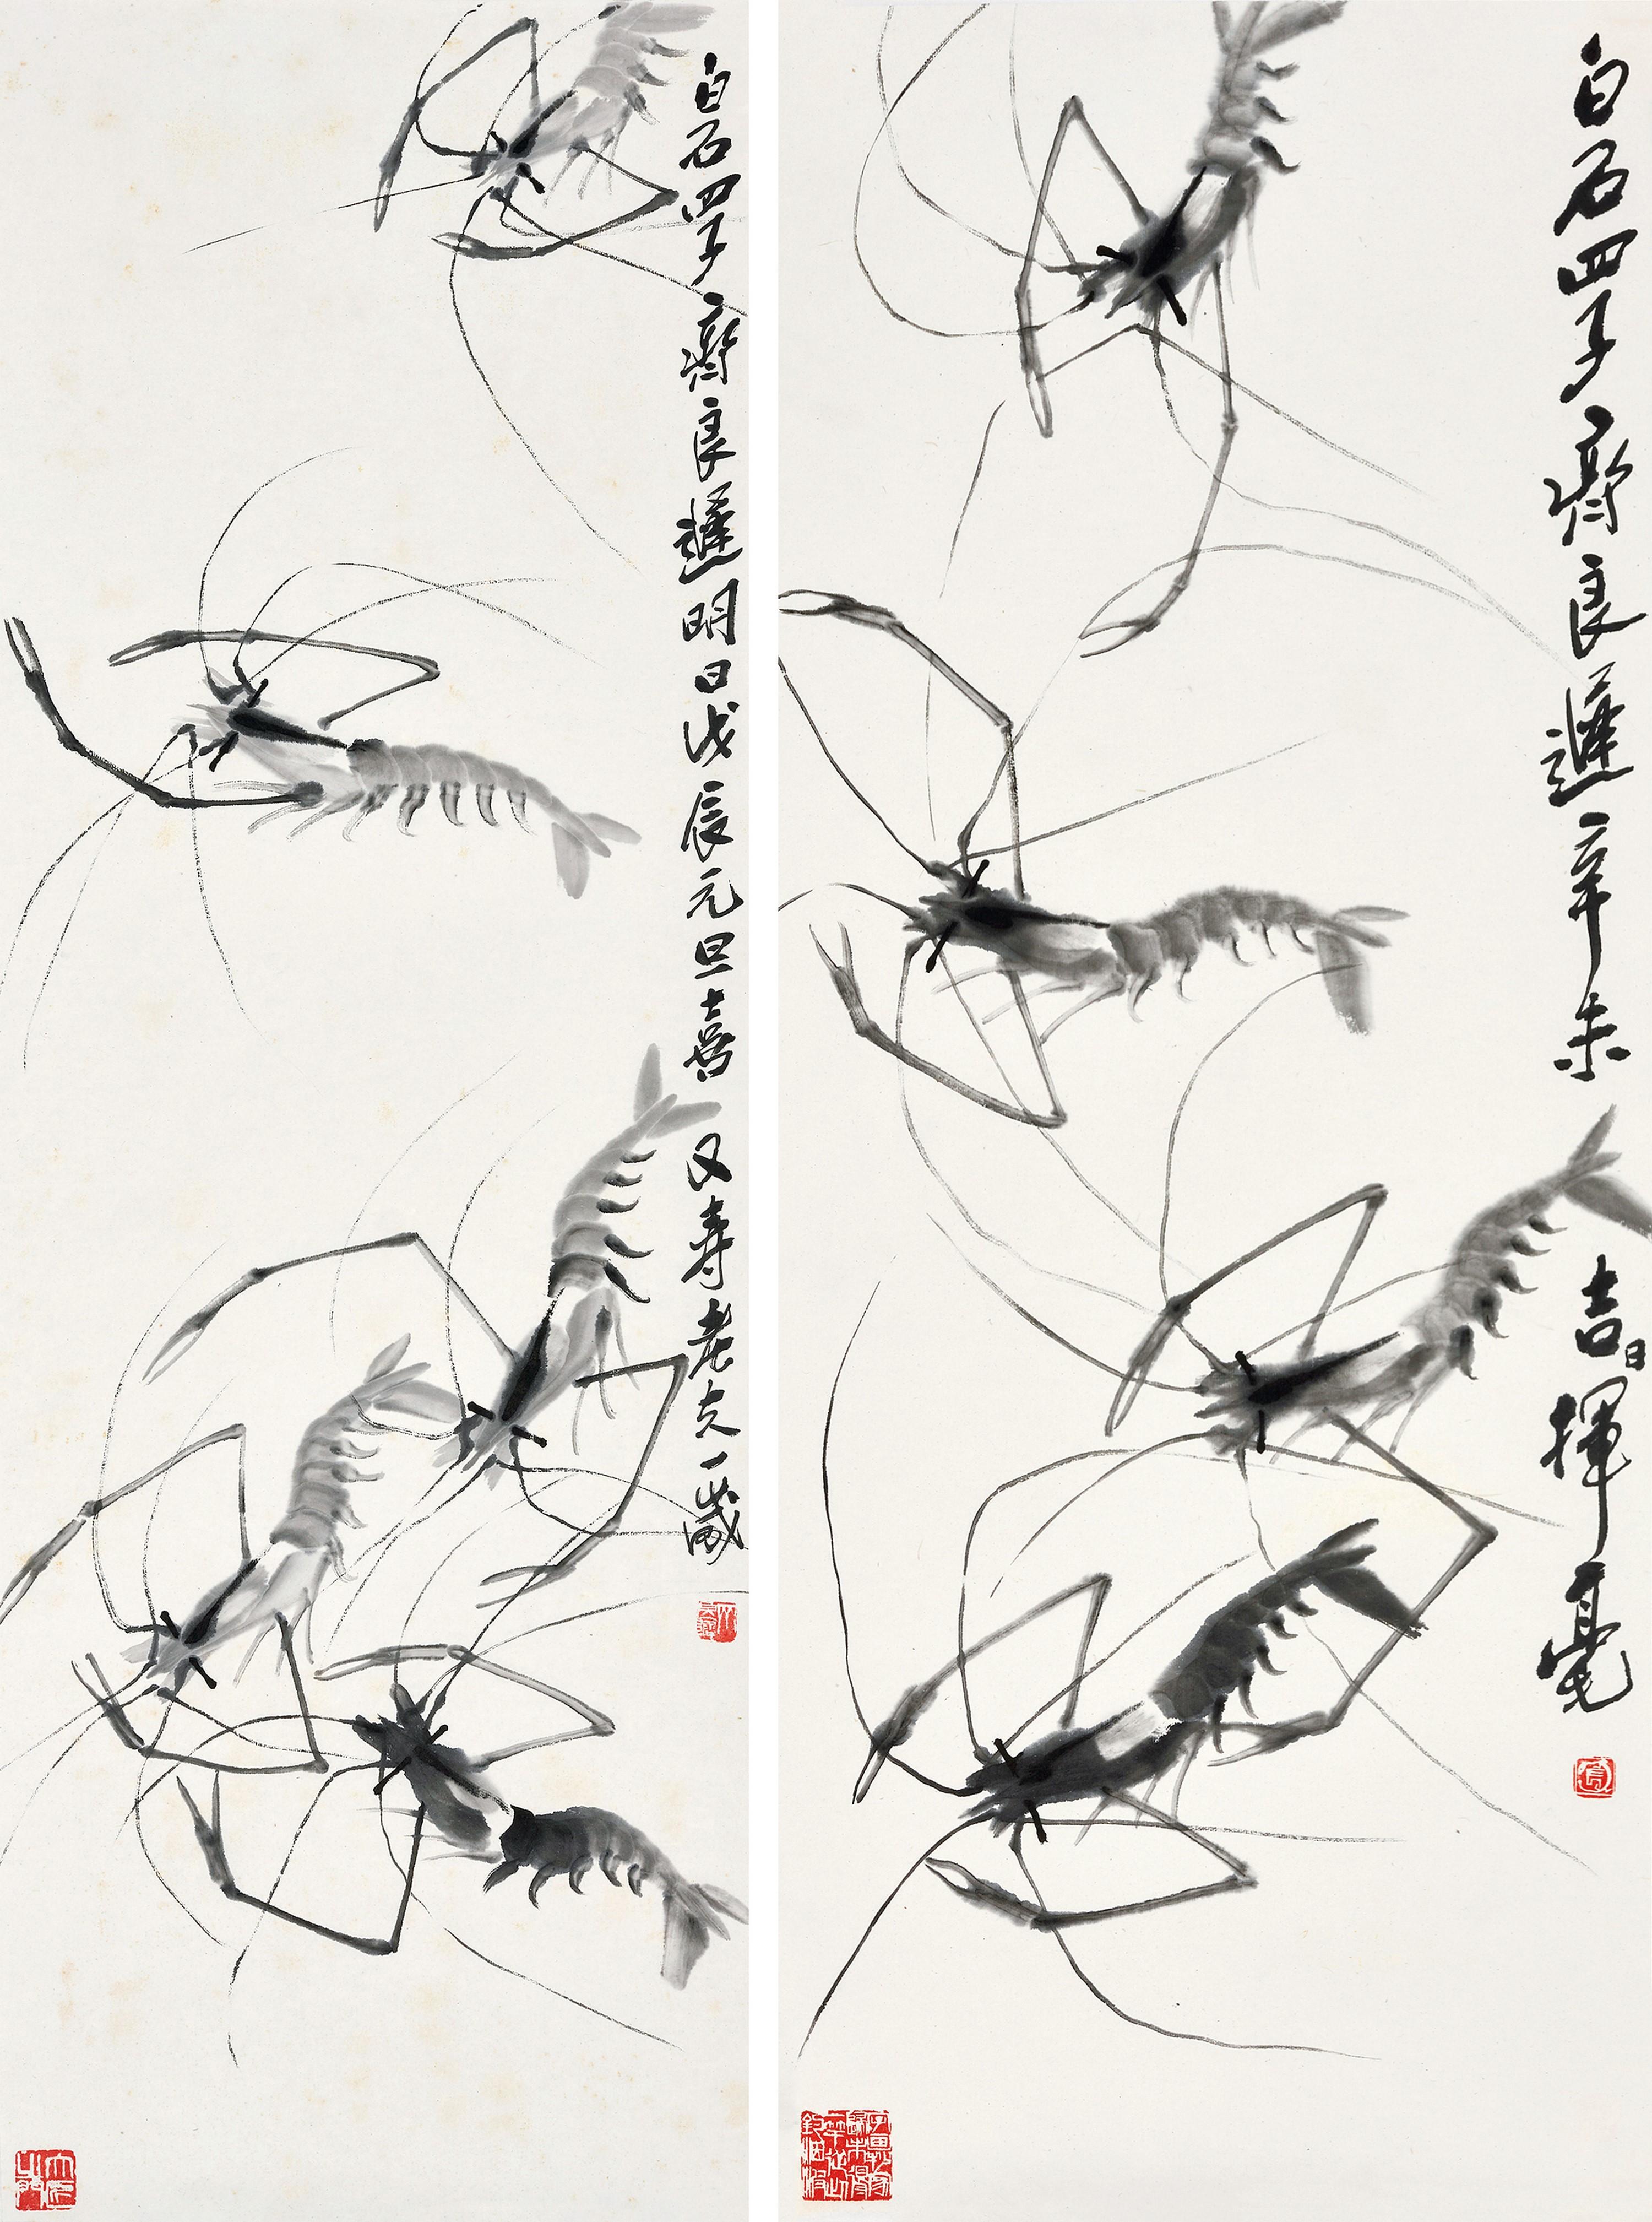 白石四子齊良遲明日戊辰元旦喜 又壽老夫一歲
白石四子齊良遲辛未 吉日揮毫